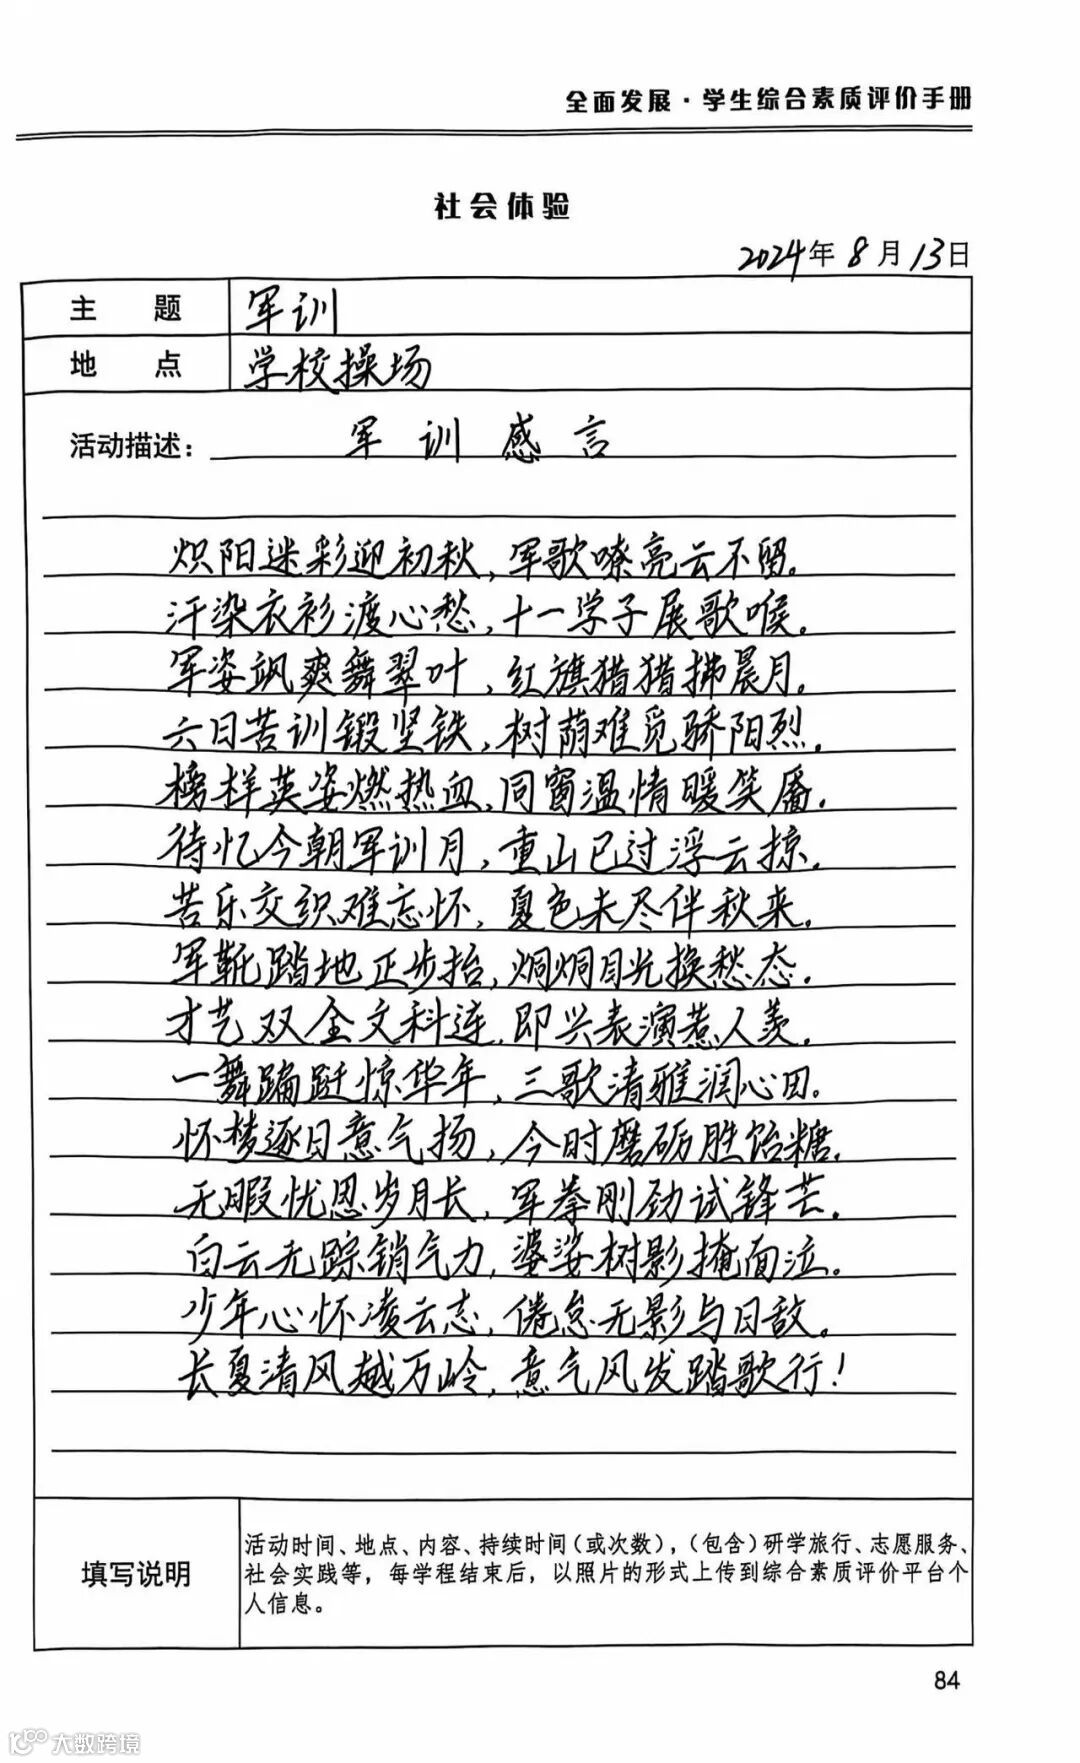 全面发展·学生综合素质评价手册
社会体验
2024年8月13日
主 题 军训
地 点 学校操场
活动描述： 军训感言
炽阳迷彩迎初秋，军歌嘹亮云不留。
汗染衣衫渡心愁，十一学子展歌喉。
军姿飒爽舞翠叶，红旗猎猎拂晨月。
六日苦训锻坚铁，树荫难觅骄阳烈。
榜样英姿燃热血，同窗温情暖笑靥。
待忆今朝军训月，重山已过浮云掠。
苦乐交织难忘怀，夏色未尽伴秋来。
军靴踏地正步抬，炯炯目光换愁态。
才艺双全文科连，即兴表演惹人羡。
一舞蹁跹惊华年，三歌清雅润心田。
怀梦逐日意气扬，今时磨砺胜饴糖。
无暇忧思岁月长，军拳刚劲试锋芒。
白云无踪销气力，婆娑树影掩面泣。
少年心怀凌云志，倦怠无影与日敌。
长夏清风越万岭，意气风发踏歌行！
填写说明
活动时间、地点、内容、持续时间（或次数），（包含）研学旅行、志愿服务、
社会实践等，每学程结束后，以照片的形式上传到综合素质评价平台个
人信息。
84
大数跨境